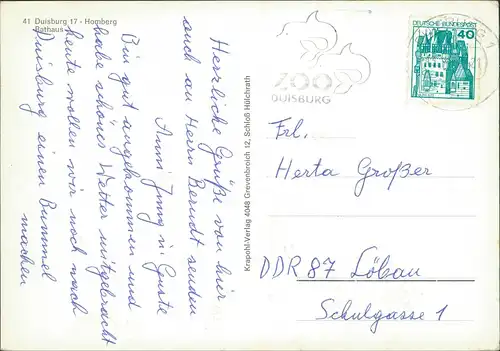 41 Duisburg 17 - Homberg
Rathaus
Herrliche Grüße von hier
auch an Herrn Berndt senden
Anni Jung u. Guste
Bin gut angekommen und
habe schönes Wetter mitgebracht
heute wollen wir noch nach
Duisburg einen Bummel
machen
Krapohl-Verlag 4048 Grevenbroich 12, Schloß Hülchrath
ZOO
DUISBURG
DEUTSCHE BUNDESPOST
40
Frl.
Herta Großer
DDR 87 Löbau
Schulgasse 1